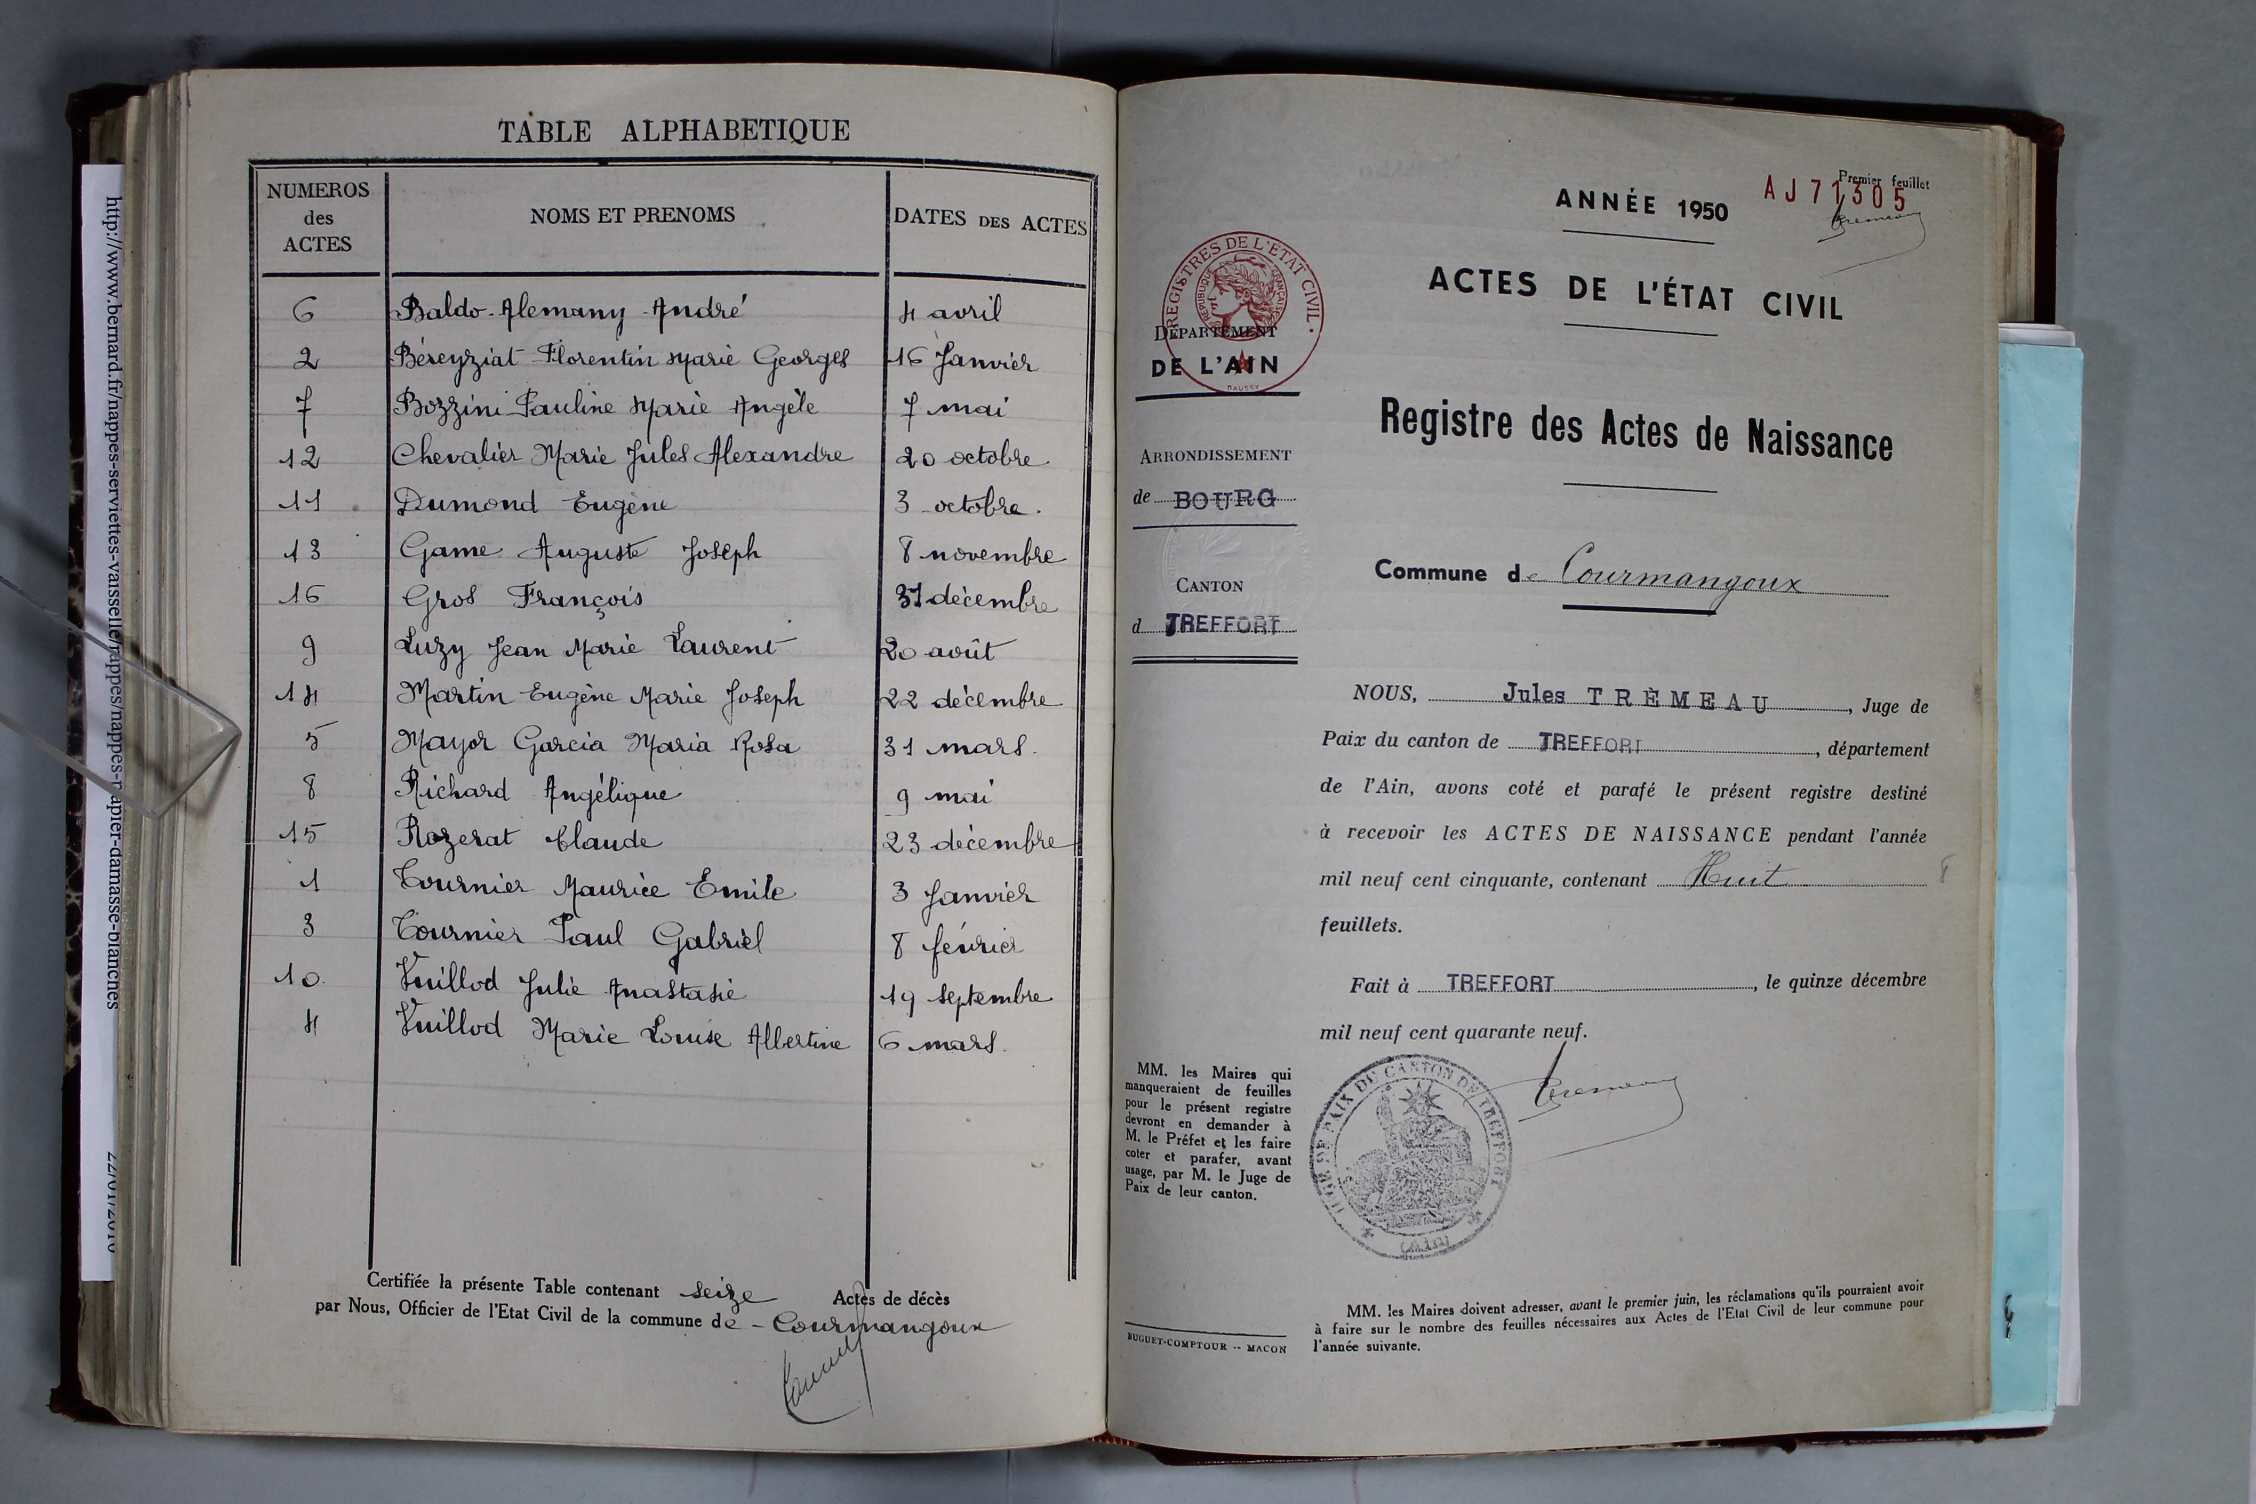 TABLE ALPHABETIQUE
NUMEROS
des
ACTES
NOMS ET PRENOMS
DATES DES ACTES
6 Baldo-Alemany André 4 avril
2 Béreyziat Florentin Marie Georges 16 Janvier
7 Bozzini Pauline Marie Angèle 7 mai
12 Chevalier Marie Jules Alexandre 20 octobre
11 Dumond Eugène 3 octobre.
13 Game Auguste Joseph 8 novembre
16 Gros François 31 décembre
9 Luzy Jean Marie Laurent 20 août
14 Martin Eugène Marie Joseph 22 décembre
5 Mayor Garcia Maria Rosa 31 mars.
8 Richard Angélique 9 mai
15 Rozerat Claude 23 décembre
1 Tournier Maurice Emile 3 Janvier
3 Tournier Paul Gabriel 8 février
10. Vuillod Julie Anastasie 19 septembre
4 Vuillod Marie Louise Albertine 6 mars.
Certifiée la présente Table contenant seize Actes de décès
par Nous, Officier de l'Etat Civil de la commune de Courmangoux
http://www.bernard.fr/nappes-serviettes-vaisselle/nappes/nappes-papier-damasse-blanches
22/01/2016
Premier feuillet
AJ 71305
Tremeau
ANNÉE 1950
ACTES DE L'ÉTAT CIVIL
REGISTRES DE L'ETAT CIVIL
REPUBLIQUE FRANÇAISE
DAUSSY
DÉPARTEMENT
DE L'AIN
Registre des Actes de Naissance
ARRONDISSEMENT
de BOURG
Commune de Courmangoux
CANTON
d TREFFORT
NOUS, Jules TRÉMEAU, Juge de
Paix du canton de TREFFORT, département
de l'Ain, avons coté et parafé le présent registre destiné
à recevoir les ACTES DE NAISSANCE pendant l'année
mil neuf cent cinquante, contenant Huit 8
feuillets.
Fait à TREFFORT, le quinze décembre
mil neuf cent quarante neuf.
Tremeau
JUGE DE PAIX DU CANTON DE TREFFORT
(AIN)
MM. les Maires qui
manqueraient de feuilles
pour le présent registre
devront en demander à
M. le Préfet et les faire
coter et parafer, avant
usage, par M. le Juge de
Paix de leur canton.
BUGUET-COMPTOUR -- MACON
MM. les Maires doivent adresser, avant le premier juin, les réclamations qu'ils pourraient avoir
à faire sur le nombre des feuilles nécessaires aux Actes de l'Etat Civil de leur commune pour
l'année suivante.